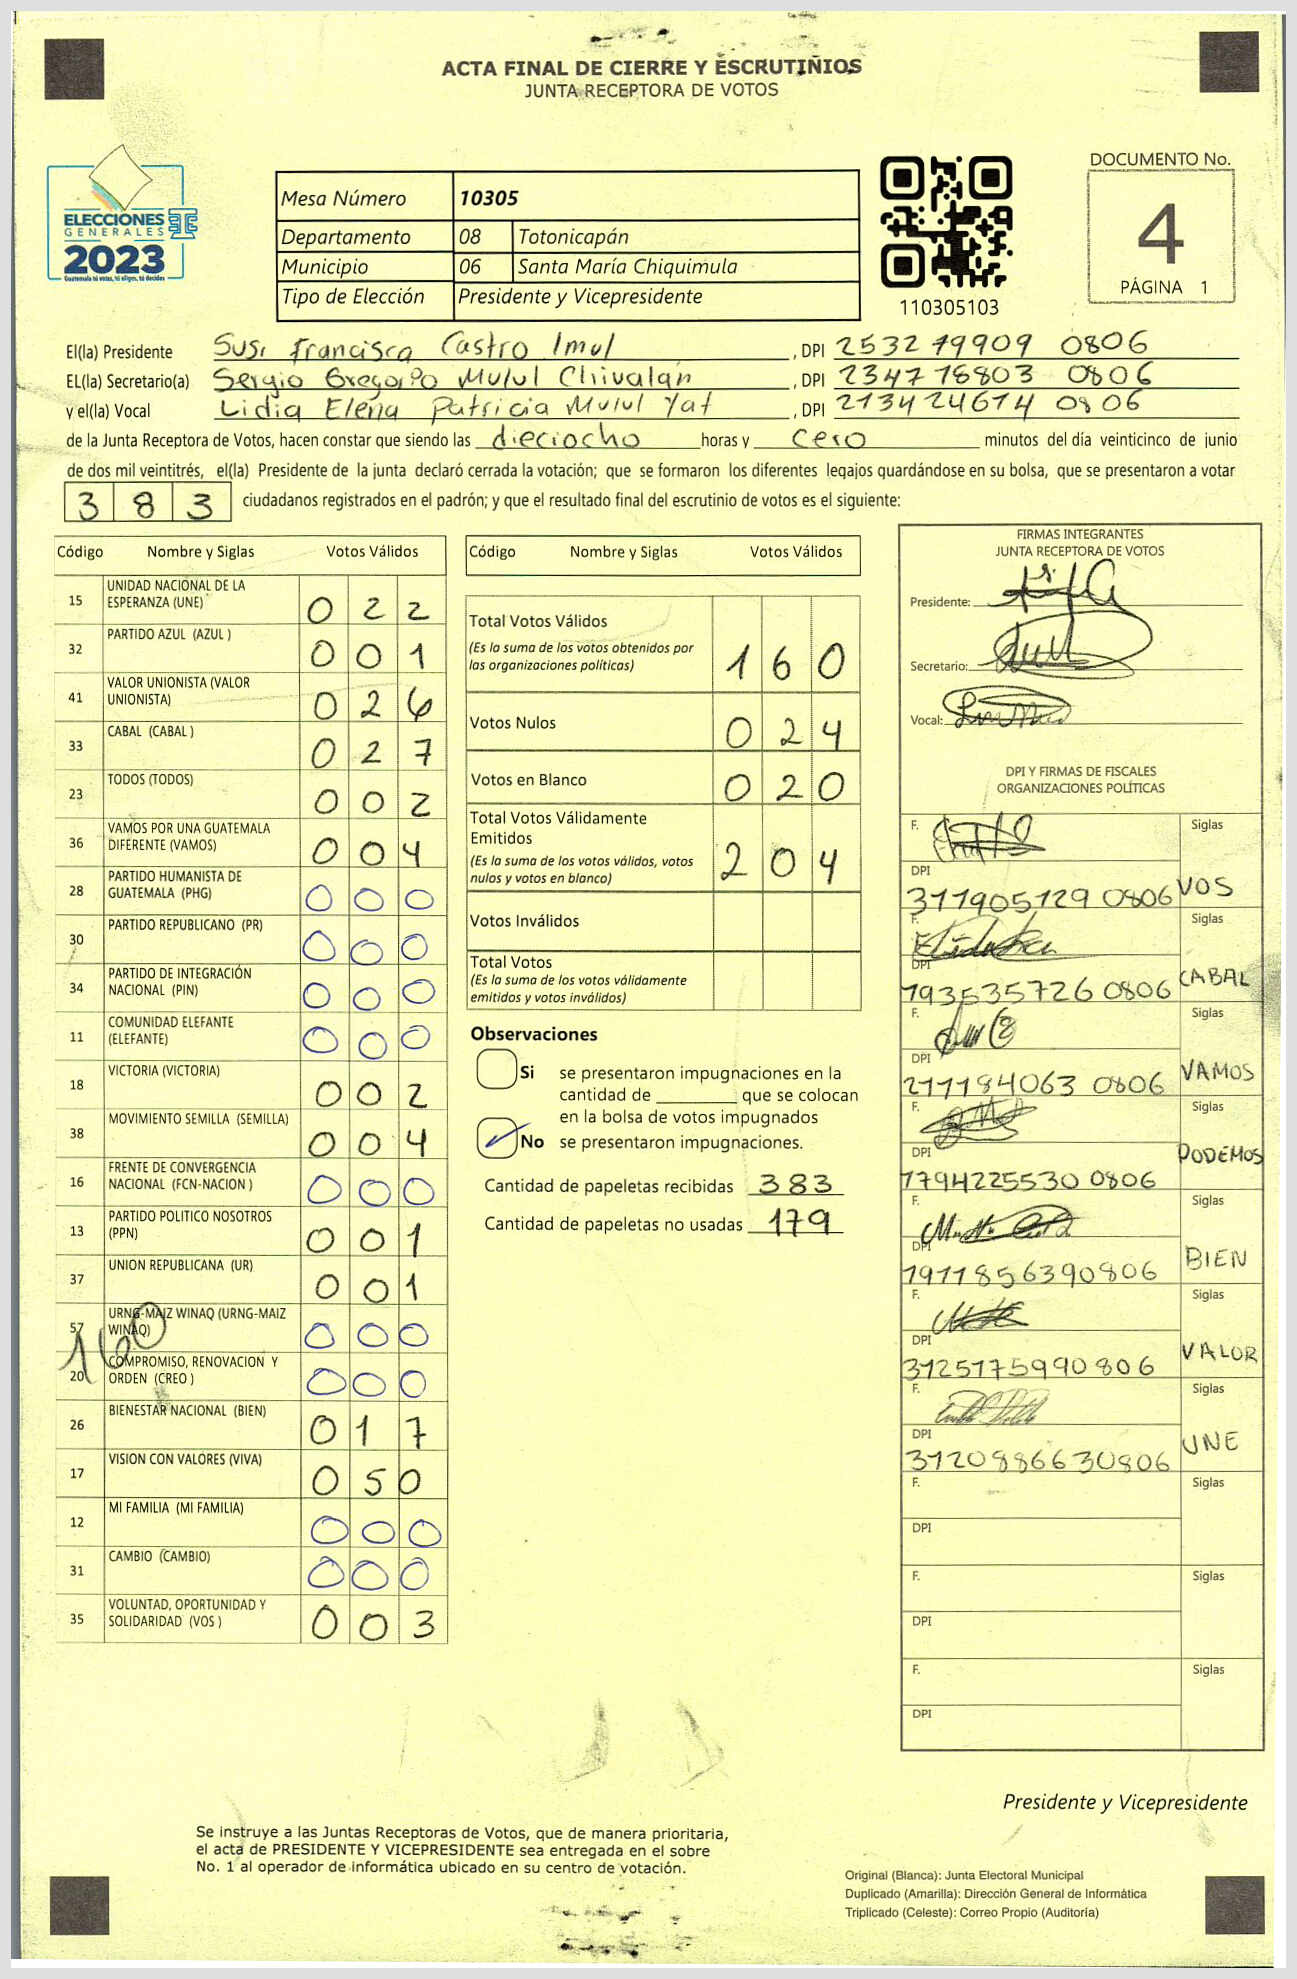 ACTA FINAL DE CIERRE Y ESCRUTIÑIOS
JUNTA RECEPTORA DE VOTOS
ELECCIONES
GENERALES
2023
Guatemala tú votas, tú eliges, tú decides
Mesa Número 10305
Departamento 08 Totonicapán
Municipio 06 Santa María Chiquimula
Tipo de Elección Presidente y Vicepresidente
110305103
DOCUMENTO No.
4
PÁGINA 1
El(la) Presidente Susi Francisca Castro Imul , DPI 253219909 0806
EL(la) Secretario(a) Sergio Gregorio Mulul Chivalán , DPI 234718803 0806
y el(la) Vocal Lidia Elena Patricia Mulul Yat , DPI 213424614 0806
de la Junta Receptora de Votos, hacen constar que siendo las dieciocho horas y cero minutos del día veinticinco de junio
de dos mil veintitrés, el(la) Presidente de la junta declaró cerrada la votación; que se formaron los diferentes legajos quardándose en su bolsa, que se presentaron a votar
383 ciudadanos registrados en el padrón; y que el resultado final del escrutinio de votos es el siguiente:
Código Nombre y Siglas Votos Válidos
15 UNIDAD NACIONAL DE LA ESPERANZA (UNE) 022
32 PARTIDO AZUL (AZUL ) 001
41 VALOR UNIONISTA (VALOR UNIONISTA) 026
33 CABAL (CABAL ) 027
23 TODOS (TODOS) 002
36 VAMOS POR UNA GUATEMALA DIFERENTE (VAMOS) 004
28 PARTIDO HUMANISTA DE GUATEMALA (PHG) 000
30 PARTIDO REPUBLICANO (PR) 000
34 PARTIDO DE INTEGRACIÓN NACIONAL (PIN) 000
11 COMUNIDAD ELEFANTE (ELEFANTE) 000
18 VICTORIA (VICTORIA) 002
38 MOVIMIENTO SEMILLA (SEMILLA) 004
16 FRENTE DE CONVERGENCIA NACIONAL (FCN-NACION ) 000
13 PARTIDO POLITICO NOSOTROS (PPN) 001
37 UNION REPUBLICANA (UR) 001
57 URNG-MAIZ WINAQ (URNG-MAIZ WINAQ) 000
160
20 COMPROMISO, RENOVACION Y ORDEN (CREO ) 000
26 BIENESTAR NACIONAL (BIEN) 017
17 VISION CON VALORES (VIVA) 050
12 MI FAMILIA (MI FAMILIA) 000
31 CAMBIO (CAMBIO) 000
35 VOLUNTAD, OPORTUNIDAD Y SOLIDARIDAD (VOS ) 003
Código Nombre y Siglas Votos Válidos
Total Votos Válidos 160
(Es la suma de los votos obtenidos por
las organizaciones políticas)
Votos Nulos 024
Votos en Blanco 020
Total Votos Válidamente
Emitidos 204
(Es la suma de los votos válidos, votos
nulos y votos en blanco)
Votos Inválidos
Total Votos
(Es la suma de los votos válidamente
emitidos y votos inválidos)
Observaciones
Si se presentaron impugnaciones en la
cantidad de ________ que se colocan
en la bolsa de votos impugnados
No se presentaron impugnaciones.
Cantidad de papeletas recibidas 383
Cantidad de papeletas no usadas 179
FIRMAS INTEGRANTES
JUNTA RECEPTORA DE VOTOS
Presidente:
Secretario:
Vocal:
DPI Y FIRMAS DE FISCALES
ORGANIZACIONES POLÍTICAS
F. Siglas
DPI
311905129 0806 VOS
F. Siglas
DPI
193535726 0806 CABAL
F. Siglas
DPI
211184063 0806 VAMOS
F. Siglas
DPI
1794225530 0806 PODEMOS
F. Siglas
DPI
1911856390806 BIEN
F. Siglas
DPI
3125175990806 VALOR
F. Siglas
DPI
3120886630806 UNE
F. Siglas
DPI
F. Siglas
DPI
F. Siglas
DPI
Presidente y Vicepresidente
Se instruye a las Juntas Receptoras de Votos, que de manera prioritaria,
el acta de PRESIDENTE Y VICEPRESIDENTE sea entregada en el sobre
No. 1 al operador de informática ubicado en su centro de votación.
Original (Blanca): Junta Electoral Municipal
Duplicado (Amarilla): Dirección General de Informática
Triplicado (Celeste): Correo Propio (Auditoría)